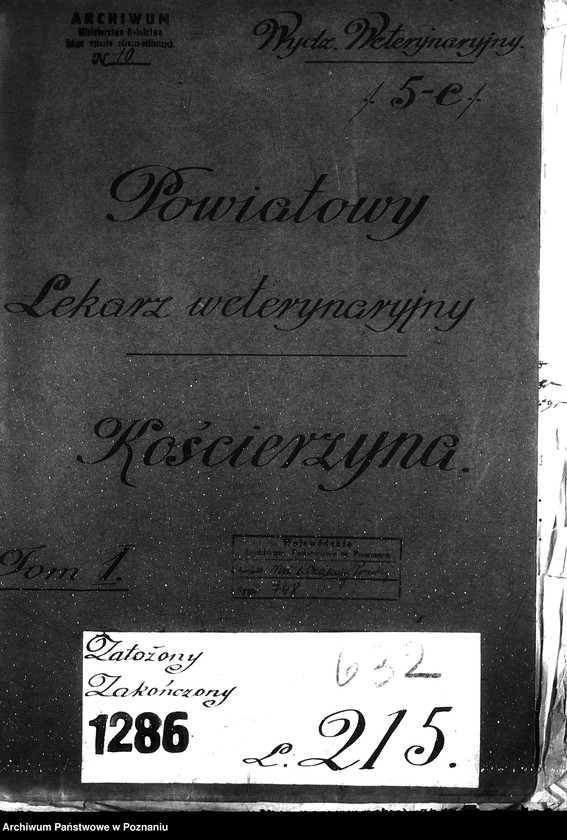 ARCHIWUM
Ministerstwa Rolnictwa
N 10
Wydz. Weterynaryjny.
/. 5-c ./
Powiatowy
Lekarz weterynaryjny
Kościerzyna.
Tom 1.
Wojewódzkie
Archiwum Państwowe w Poznaniu
748
Założony
Zakończony
632
1286
L. 215.
Archiwum Państwowe w Poznaniu